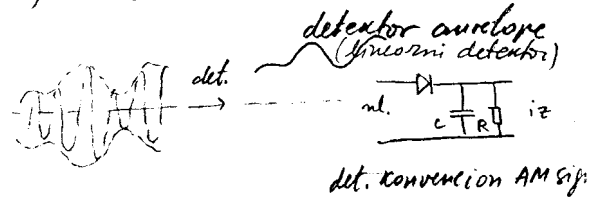 detektor anvelope
(linearni detektor)
det.
ul.
C
R
iz
det. konvencion AM sig.